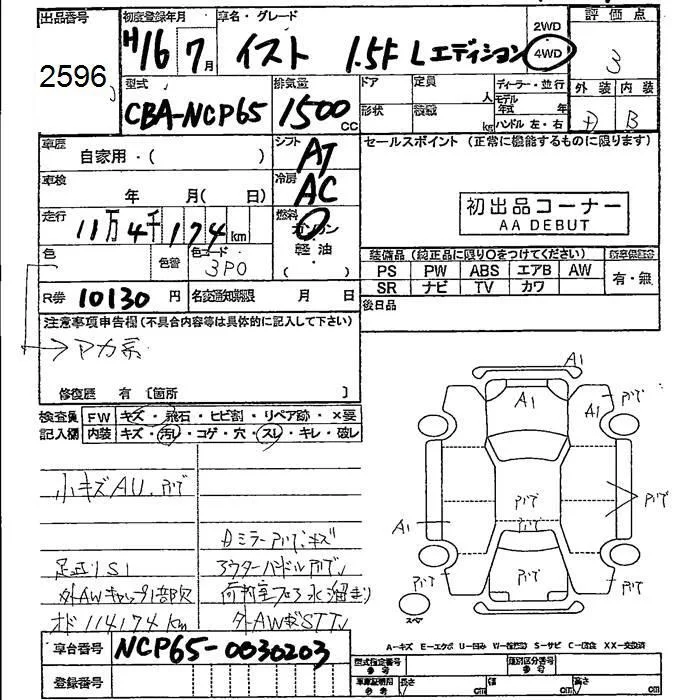 出品番号 初度登録年月 車名・グレード 2WD 評価点
2596 H16 7月 イスト 1.5F Lエディション 4WD 3
型式 排気量 ドア 定員 人 ディーラー・並行 外装 内装
CBA-NCP65 1500cc 形状 積載 kg モデル年式 年 B
ハンドル 左・右
車歴 自家用・( ) シフト AT セールスポイント (正常に機能するものに限ります)
車検 年 月( 日) 冷房 AC
初出品コーナー
AA DEBUT
走行 11万4千174km 燃料 ガソリン
軽油
( )
色 色替 色コード 3P0
装備品 (純正品に限り○をつけてください) 新車保証書
PS PW ABS エアB AW 有・無
SR ナビ TV カワ
R券 10130円 名変通知期限 月 日 後日品
注意事項申告欄(不具合内容等は具体的に記入して下さい)
→アカ系
修復歴 有 〔箇所 〕
検査員 FW キズ・飛石・ヒビ割・リペア跡・×要
記入欄 内装 キズ・汚レ・コゲ・穴・スレ・キレ・破レ
A1
A1
A1
A1
小キズAU.
Dミラー キズ
足廻リS1
アウターハンドル
外AWキャップ1部欠 荷物室フロア水溜まり
オド114174km
スペア
車台番号 NCP65-0030203
登録番号
A-キズ E-エクボ U-凹み S-サビ C-腐食 XX-交換済
型式指定番号 参考 類別区分番号 参考
車庫証明用 参考 長さ cm cm 高さ cm